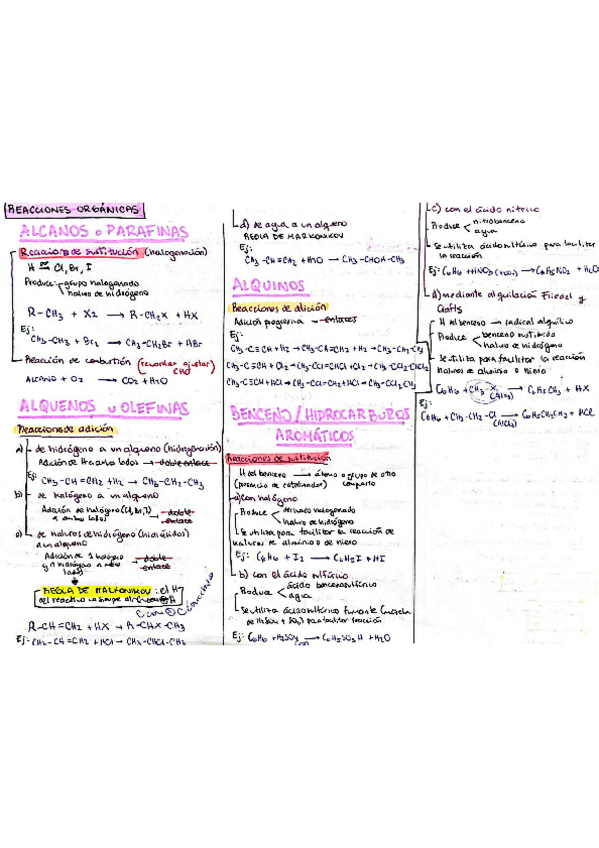 REACCIONES ORGÁNICAS
ALCANOS o PARAFINAS
Reacciones de sustitución (halogenación)
H ⇄ Cl, Br, I
Produce: grupo halogenado
haluro de hidrógeno
R-CH3 + X2 → R-CH2X + HX
Ej:
CH3-CH3 + Br2 → CH3-CH2Br + HBr
Reacción de combustión (recordar ajustar CHO)
ALCANO + O2 → CO2 + H2O
ALQUENOS u OLEFINAS
Reacciones de adición
a) de hidrógeno a un alqueno (hidrogenación)
Adición de H a ambos lados → doble enlace
Ej:
CH3-CH=CH2 + H2 → CH3-CH2-CH3
b) de halógeno a un alqueno
Adición de halógeno (Cl, Br, I) → doble enlace
a ambos lados
c) de haluros de hidrógeno (hidrácidos)
a un alqueno
Adición de 1 halógeno → doble enlace
y 1 hidrógeno a
lados
REGLA DE MARKONIKOV: el H
del reactivo se
R-CH=CH2 + HX → R-CHX-CH3
Ej: CH3-CH=CH2 + HCl → CH3-CHCl-CH3
d) de agua a un alqueno
REGLA DE MARKONIKOV
Ej:
CH3-CH=CH2 + H2O → CH3-CHOH-CH3
ALQUINOS
Reacciones de adición
Adición progresiva → enlaces
Ej:
CH3-C≡CH + H2 → CH3-CH=CH2 + H2 → CH3-CH2-CH3
CH3-C≡CH + Cl2 → CH3-CCl=CHCl + Cl2 → CH3-CCl2-CHCl2
CH3-C≡CH + HCl → CH3-CCl=CH2 + HCl → CH3-CCl2CH3
BENCENO / HIDROCARBUROS
AROMÁTICOS
Reacciones de sustitución
H del benceno → átomo o grupo de otro
(presencia de catalizador) compuesto
a) con halógeno
Produce derivado halogenado
haluro de hidrógeno
Se utiliza para facilitar la reacción de
haluros de aluminio o de hierro
Ej: C6H6 + I2 → C6H5I + HI
b) con el ácido sulfúrico
Produce ácido bencenosulfónico
agua
Se utiliza ácido sulfúrico fumante (mezcla
de H2SO4 + SO3) para facilitar reacción
Ej: C6H6 + H2SO4 → C6H5SO3H + H2O
c) con el ácido nítrico
Produce nitrobenceno
agua
Se utiliza ácido sulfúrico para facilitar
la reacción
Ej: C6H6 + HNO3 → C6H5NO2 + H2O
d) mediante alquilación Friedel y
Crafts
H del benceno → radical alquílico
Produce benceno sustituido
haluro de hidrógeno
Se utiliza para facilitar la reacción
haluros de aluminio o hierro
C6H6 + CH3-X → C6H5CH3 + HX
Ej:
C6H6 + CH3-CH2-Cl → C6H5CH2CH3 + HCl
(AlCl3)